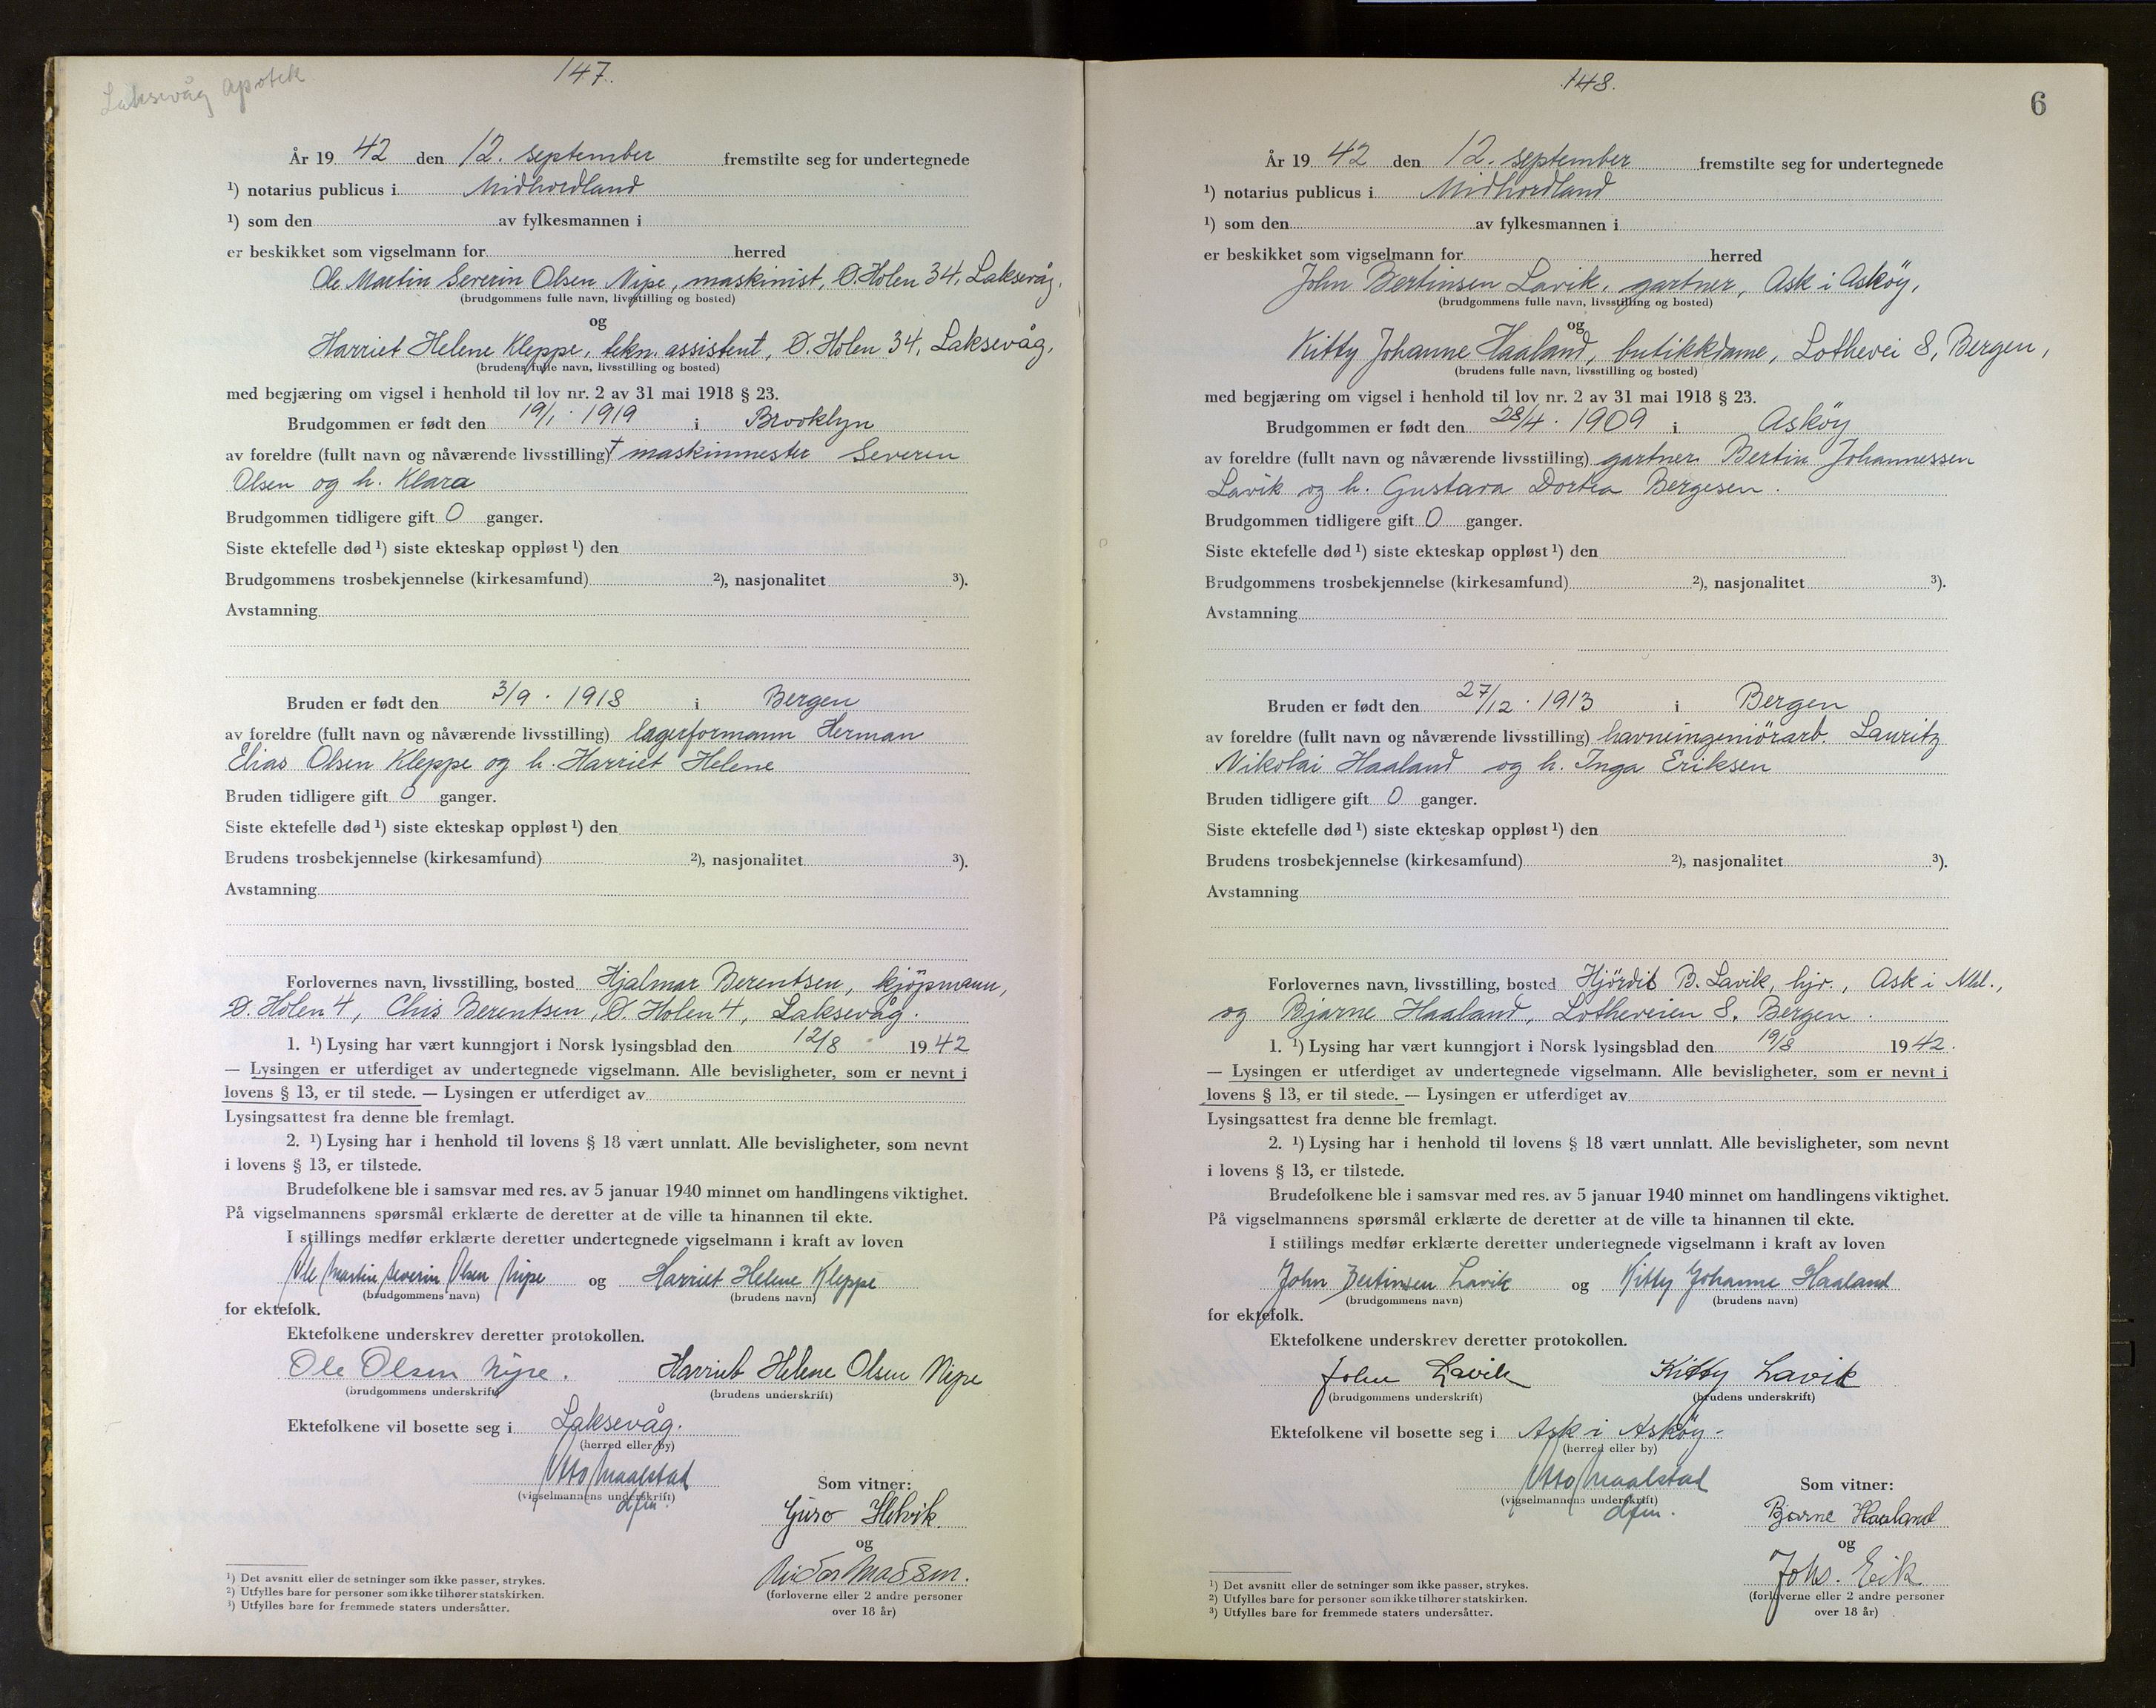 Laksevåg Apotek
147.
År 19 42 den 12. september fremstilte seg for undertegnede
¹) notarius publicus i Midhordland
¹) som den av fylkesmannen i
er beskikket som vigselmann for herred
Ole Martin Severin Olsen Nipe, maskinist, D. Holen 34, Laksevåg,
(brudgommens fulle navn, livsstilling og bosted)
og
Harriet Helene Kleppe, tekn. assistent, D. Holen 34, Laksevåg,
(brudens fulle navn, livsstilling og bosted)
med begjæring om vigsel i henhold til lov nr. 2 av 31 mai 1918 § 23.
Brudgommen er født den 19/1. 1919 i Brooklyn
av foreldre (fullt navn og nåværende livsstilling) † maskinmester Severin
Olsen og h. Klara
Brudgommen tidligere gift 0 ganger.
Siste ektefelle død ¹) siste ekteskap oppløst ¹) den
Brudgommens trosbekjennelse (kirkesamfund) ²), nasjonalitet ³).
Avstamning
Bruden er født den 3/9. 1918 i Bergen
av foreldre (fullt navn og nåværende livsstilling) lagerformann Herman
Elias Olsen Kleppe og h. Harriet Helene
Bruden tidligere gift 0 ganger.
Siste ektefelle død ¹) siste ekteskap oppløst ¹) den
Brudens trosbekjennelse (kirkesamfund) ²), nasjonalitet ³).
Avstamning
Forlovernes navn, livsstilling, bosted Hjalmar Berentsen, kjöpmann,
D. Holen 4, Chis Berentsen, D. Holen 4, Laksevåg.
1. ¹) Lysing har vært kunngjort i Norsk lysingsblad den 12/8 19 42
— Lysingen er utferdiget av undertegnede vigselmann. Alle bevisligheter, som er nevnt i
lovens § 13, er til stede. — Lysingen er utferdiget av
Lysingsattest fra denne ble fremlagt.
2. ¹) Lysing har i henhold til lovens § 18 vært unnlatt. Alle bevisligheter, som nevnt
i lovens § 13, er tilstede.
Brudefolkene ble i samsvar med res. av 5 januar 1940 minnet om handlingens viktighet.
På vigselmannens spørsmål erklærte de deretter at de ville ta hinannen til ekte.
I stillings medfør erklærte deretter undertegnede vigselmann i kraft av loven
Ole Martin Severin Olsen Nipe og Harriet Helene Kleppe
(brudgommens navn) (brudens navn)
for ektefolk.
Ektefolkene underskrev deretter protokollen.
Ole Olsen Nipe. Harriet Helene Olsen Nipe
(brudgommens underskrift) (brudens underskrift)
Ektefolkene vil bosette seg i Laksevåg.
(herred eller by)
Otto Maalstad
(vigselmannens underskrift)
dfm.
Som vitner:
Guro
og
Madsen.
(forloverne eller 2 andre personer
over 18 år)
¹) Det avsnitt eller de setninger som ikke passer, strykes.
²) Utfylles bare for personer som ikke tilhører statskirken.
³) Utfylles bare for fremmede staters undersåtter.
148.
6
År 19 42 den 12. september fremstilte seg for undertegnede
¹) notarius publicus i Midhordland
¹) som den av fylkesmannen i
er beskikket som vigselmann for herred
John Bertinsen Lavik, gartner, Ask i Asköy,
(brudgommens fulle navn, livsstilling og bosted)
og
Kitty Johanne Haaland, butikkdame, Lothevei 8, Bergen,
(brudens fulle navn, livsstilling og bosted)
med begjæring om vigsel i henhold til lov nr. 2 av 31 mai 1918 § 23.
Brudgommen er født den 28/4. 1909 i Asköy
av foreldre (fullt navn og nåværende livsstilling) gartner Bertin Johannessen
Lavik og h. Gustava Dortea Bergesen.
Brudgommen tidligere gift 0 ganger.
Siste ektefelle død ¹) siste ekteskap oppløst ¹) den
Brudgommens trosbekjennelse (kirkesamfund) ²), nasjonalitet ³).
Avstamning
Bruden er født den 27/12. 1913 i Bergen
av foreldre (fullt navn og nåværende livsstilling) havneingeniörarb. Lauritz
Nikolai Haaland og h. Inga Eriksen
Bruden tidligere gift 0 ganger.
Siste ektefelle død ¹) siste ekteskap oppløst ¹) den
Brudens trosbekjennelse (kirkesamfund) ²), nasjonalitet ³).
Avstamning
Forlovernes navn, livsstilling, bosted Hjördis B. Lavik, hjv., Ask i
og Bjarne Haaland, Lotheveien 8. Bergen.
1. ¹) Lysing har vært kunngjort i Norsk lysingsblad den 19/8 19 42.
— Lysingen er utferdiget av undertegnede vigselmann. Alle bevisligheter, som er nevnt i
lovens § 13, er til stede. — Lysingen er utferdiget av
Lysingsattest fra denne ble fremlagt.
2. ¹) Lysing har i henhold til lovens § 18 vært unnlatt. Alle bevisligheter, som nevnt
i lovens § 13, er tilstede.
Brudefolkene ble i samsvar med res. av 5 januar 1940 minnet om handlingens viktighet.
På vigselmannens spørsmål erklærte de deretter at de ville ta hinannen til ekte.
I stillings medfør erklærte deretter undertegnede vigselmann i kraft av loven
John Bertinsen Lavik og Kitty Johanne Haaland
(brudgommens navn) (brudens navn)
for ektefolk.
Ektefolkene underskrev deretter protokollen.
John Lavik Kitty Lavik
(brudgommens underskrift) (brudens underskrift)
Ektefolkene vil bosette seg i Ask i Asköy-
(herred eller by)
Otto Maalstad
(vigselmannens underskrift)
dfm.
Som vitner:
Bjarne Haaland
og
Johs. Eik
(forloverne eller 2 andre personer
over 18 år)
¹) Det avsnitt eller de setninger som ikke passer, strykes.
²) Utfylles bare for personer som ikke tilhører statskirken.
³) Utfylles bare for fremmede staters undersåtter.